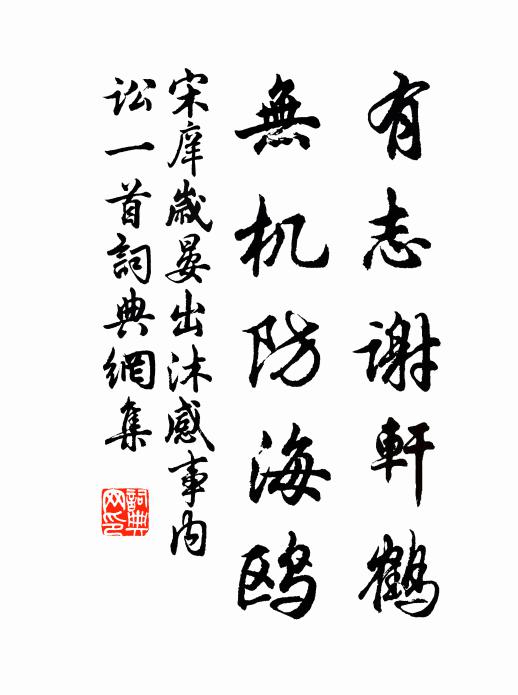 有志謝軒鶴
無机防海鸥
宋庠歲晏出沐感事内
訟一首詞典網集
詞典
网印